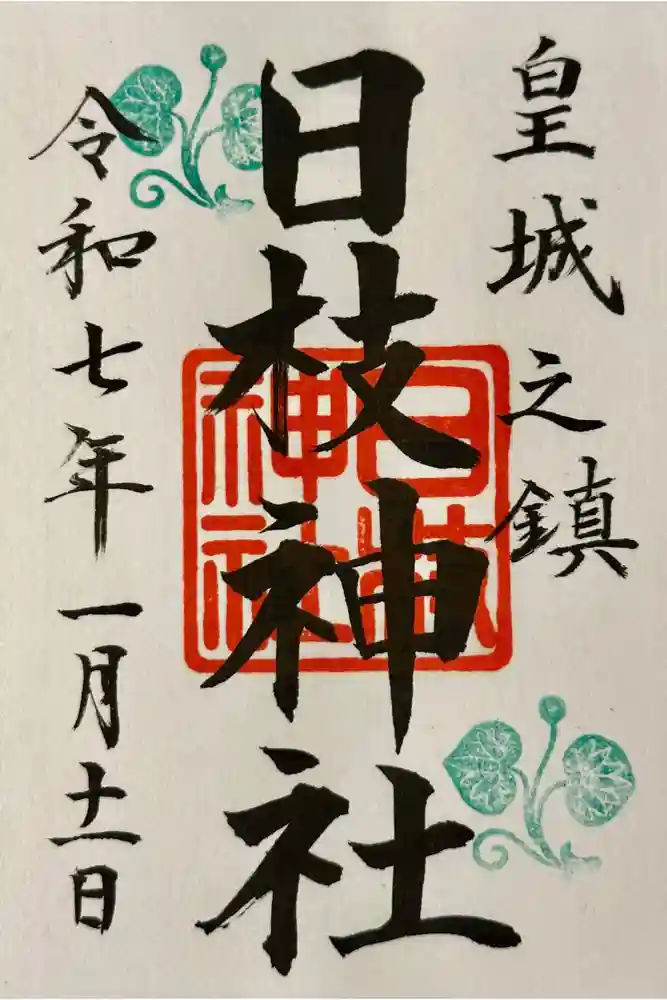 皇城之鎮
日枝神社
日枝
神社
令和七年一月十一日